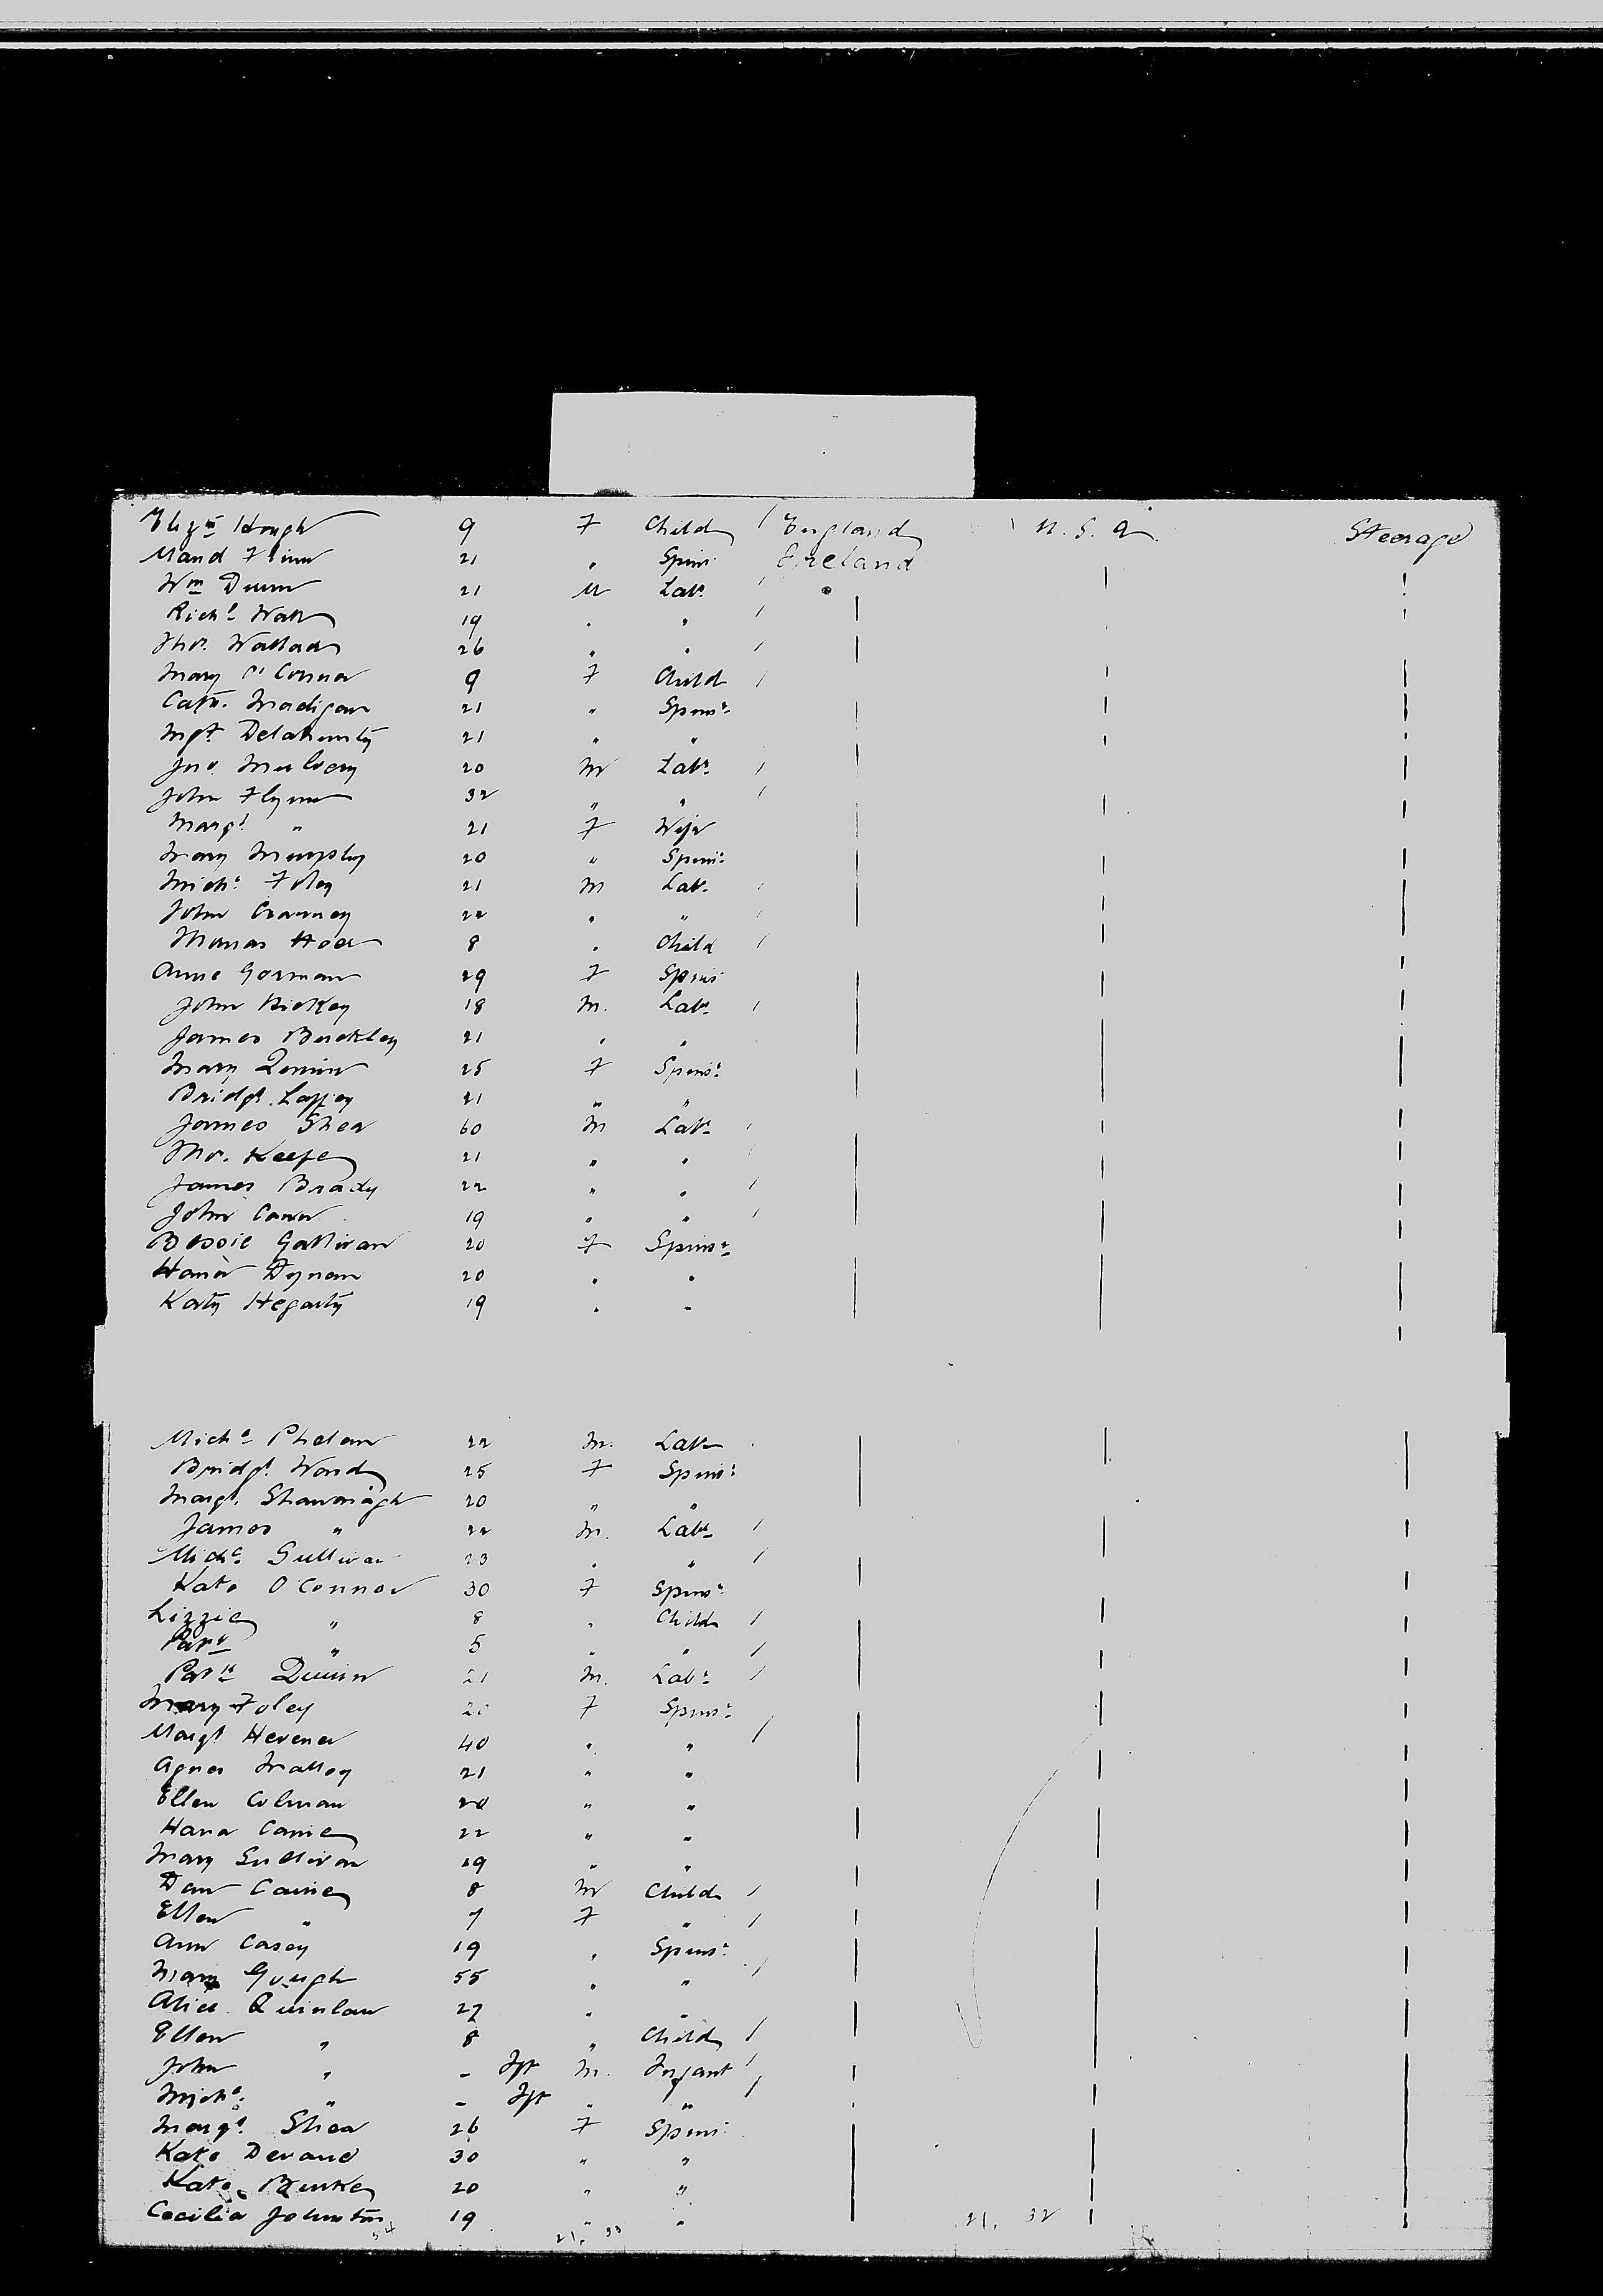 Elizth Hough 9 F Child / England \ U. S. A. Steerage
Maud Flinn 21 " Spins Ireland
Wm Dunn 21 M Labr /
Richd Wall 19 " " /
Thos. Wallace 26 " " /
Mary O'Connor 9 F Child /
Cath. Madigan 21 " Spinsr
Mgt Delahunty 21 " "
Jno. 20 M Labr /
John Flynn 32 " " /
Margt " 21 F Wife
Mary 20 " Spinsr
Michl Foley 21 M Labr /
John 22 " " /
Thomas 8 " Child /
Anne Gorman 29 F Spins
John Hickey 18 M. Labr /
James Buckley 21 " "
Mary Quinn 25 F Spinsr
Bridgt Laffey 21 " "
James Shea 60 M Labr /
Thos. Keefe 21 " " /
James Brady 22 " " /
John 19 " " /
Bessie Gallivan 20 F Spinsr
Hana Dynan 20 " "
Katy Hegarty 19 " "
Michl Phelan 22 M. Labr
Bridgt Ward 25 F Spinsr
Margt 20 " "
James " 22 M. Labr /
Michl Sullivan 23 " " /
Kate O'Connor 30 F Spinsr
Lizzie " 8 " Child /
" 5 " " /
Patk Quinn 21 M. Labr /
Mary Foley F Spinsr
Margt 40 " " /
Agnes Malloy 21 " "
Ellen Colman 20 " "
Hana 22 " "
Mary Sullivan 19 " "
Dan 8 M Child /
Ellen " 7 F " /
Ann Casey 19 " Spinsr
Mary Gough 55 " " /
Alice Quinlan 27 " "
Ellen " 8 " Child /
John " - Inft M. Infant /
Michl " - Inft " " /
Margt Shea 26 F Spins
Kate Devane 30 " "
Kate Burke 20 " "
Cecilia Johnston 19 " "
21. 33 21. 32